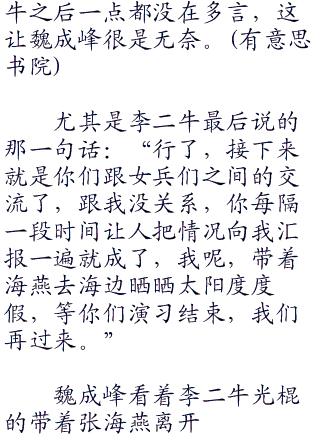 牛之后一点都没在多言，这
让魏成峰很是无奈。(有意思
书院)
尤其是李二牛最后说的
那一句话：“行了，接下来
就是你们跟女兵们之间的交
流了，跟我没关系，你每隔
一段时间让人把情况向我汇
报一遍就成了，我呢，带着
海燕去海边晒晒太阳度度
假，等你们演习结束，我们
再过来。”
魏成峰看着李二牛光棍
的带着张海燕离开